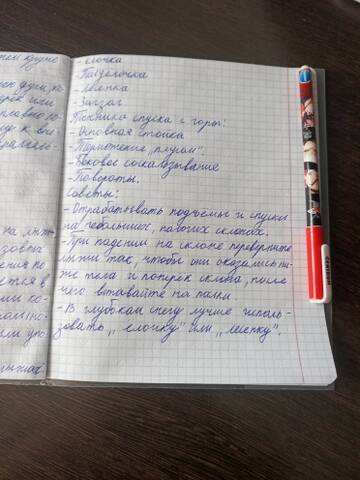 - ёлочка
- Полуёлочка
- лесенка
- Зигзаг.
Техника спуска с горы:
- Основная стойка
- Торможение „плугом".
- Боковое соскальзывание
- Повороты.
Советы:
- Отрабатывать подъёмы и спуски
на небольших, пологих склонах.
- При падении на склоне переверните
лыжи так, чтобы они оказались ни-
же тела и поперёк склона, после
чего вставайте на палки.
- В глубоком снегу лучше исполь-
зовать „ёлочку" или „лесенку".